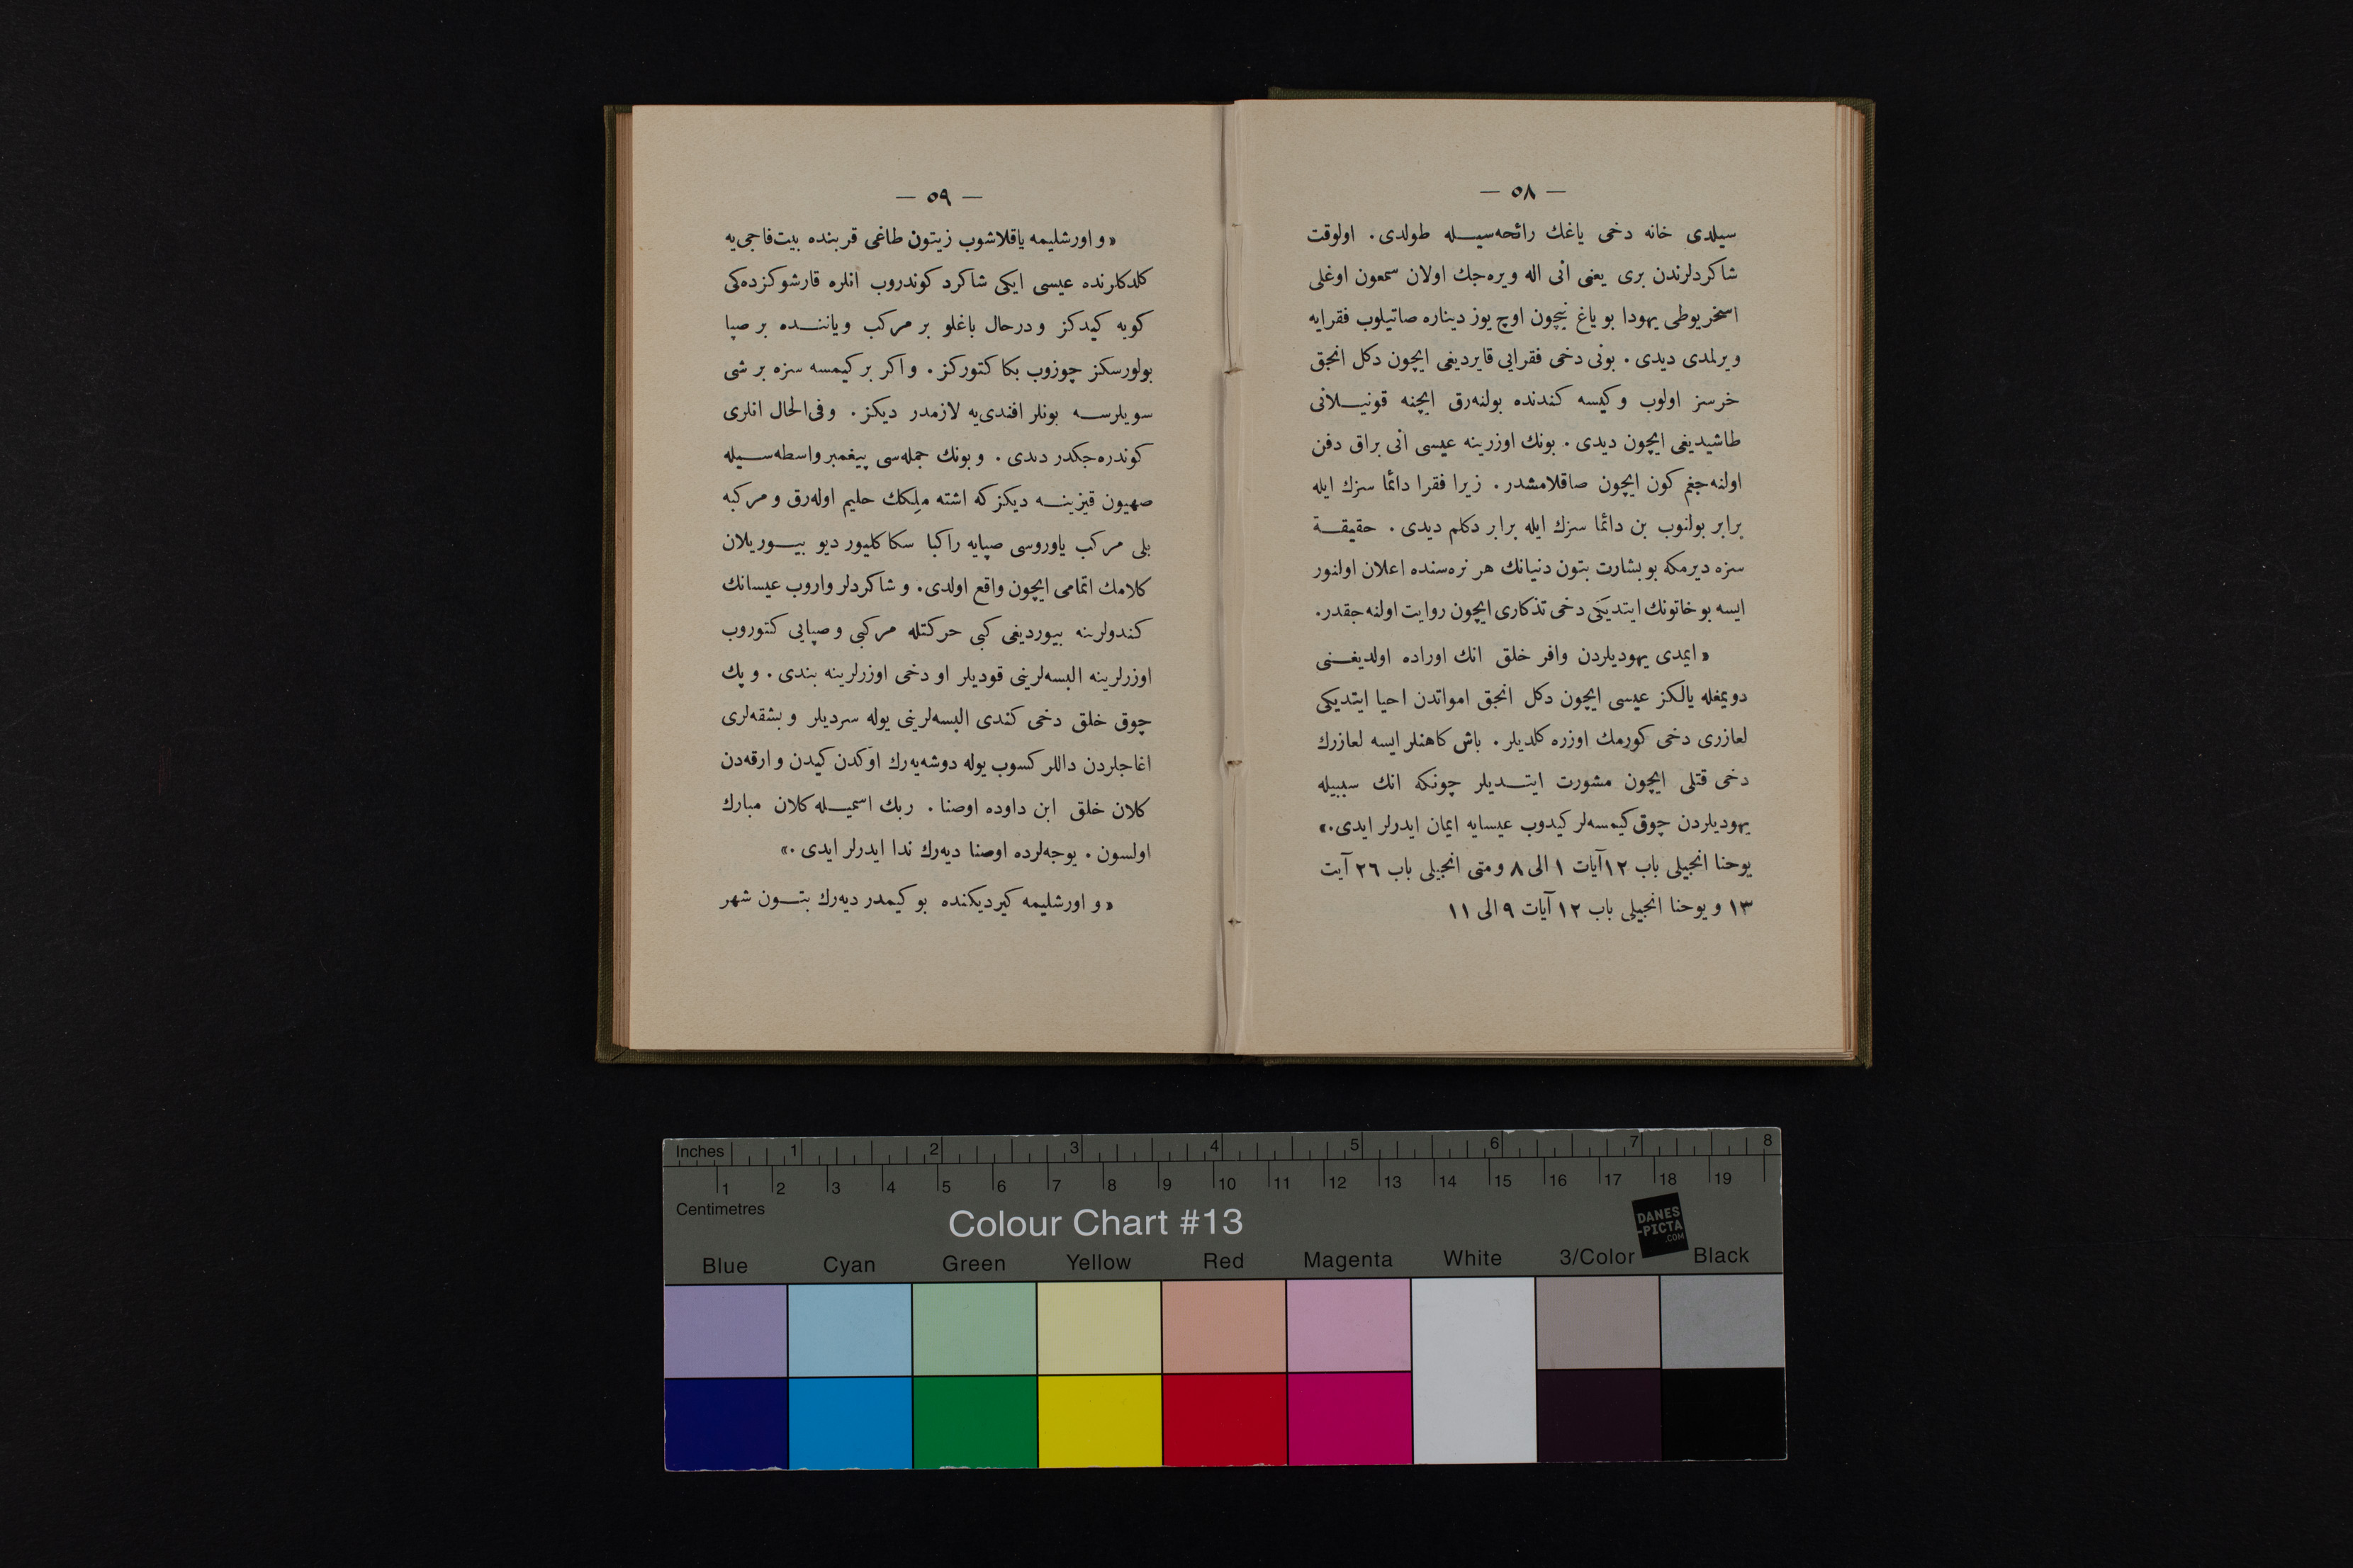 — ٥٨ —
سیلدی خانه دخی یاغك رائحه‌سیله طولدی. اولوقت
شاكردلرندن بری یعنی انی اله ویره‌جك اولان سمعون اوغلی
اسخریوطی یهودا بو یاغ نیچون اوچ یوز دیناره صاتیلوب فقرایه
ویرلمدی دیدی. بونی دخی فقرایی قایردیغی ایچون دكل انجق
خرسز اولوب و كیسه كندنده بولنه‌رق ایچنه قونیلانی
طاشیدیغی ایچون دیدی. بونك اوزرینه عیسی انی براق دفن
اولنه‌جغم كون ایچون صاقلامشدر. زیرا فقرا دائما سزك ایله
برابر بولنوب بن دائما سزك ایله برابر دكلم دیدی. حقیقة
سزه دیرمكه بو بشارت بتون دنیانك هر نره‌سنده اعلان اولنور
ایسه بو خاتونك ایتدیكی دخی تذكاری ایچون روایت اولنه‌جقدر.
« ایمدی یهودیلردن وافر خلق انك اوراده اولدیغنی
دویمغله یالكز عیسی ایچون دكل انجق امواتدن احیا ایتدیكی
لعازری دخی كورمك اوزره كلدیلر. باش كاهنلر ایسه لعازرك
دخی قتلی ایچون مشورت ایتدیلر چونكه انك سببیله
یهودیلردن چوق كیمسه‌لر كیدوب عیسایه ایمان ایدرلر ایدی.»
یوحنا انجیلی باب ١٢ آیات ١ الی ٨ و متی انجیلی باب ٢٦ آیت
١٣ و یوحنا انجیلی باب ١٢ آیات ٩ الی ١١
— ٥٩ —
« و اورشلیمه یاقلاشوب زیتون طاغی قربنده بیت‌فاجی‌یه
كلدكلرنده عیسی ایكی شاكرد كوندروب انلره قارشوكزده‌كی
كویه كیدكز و درحال باغلو بر مركب و یاننده بر صپا
بولورسكز چوزوب بكا كتوركز. و اكر بر كیمسه سزه بر شی
سویلرسه بونلر افندی‌یه لازمدر دیكز. و فی‌الحال انلری
كوندره‌جكدر دیدی. و بونك جمله‌سی پیغمبر واسطه‌سیله
صهیون قیزینه دیكز كه اشته مَلِكك حلیم اوله‌رق و مركبه
بلی مركب یاوروسی صپایه راكبا سكا كلیور دیو بیوریلان
كلامك اتمامی ایچون واقع اولدی. و شاكردلر واروب عیسانك
كندولرینه بیوردیغی كبی حركتله مركبی و صپایی كتوروب
اوزرلرینه البسه‌لرینی قودیلر او دخی اوزرلرینه بندی. و پك
چوق خلق دخی كندی البسه‌لرینی یوله سردیلر و بشقه‌لری
اغاجلردن داللر كسوب یوله دوشه‌یه‌رك اوكدن كیدن و ارقه‌دن
كلان خلق ابن داوده اوصنا. ربك اسمیله كلان مبارك
اولسون. یوجه‌لرده اوصنا دیه‌رك ندا ایدرلر ایدی.»
« و اورشلیمه كیردیكنده بو كیمدر دیه‌رك بتون شهر
Inches 1 2 3 4 5 6 7 8
1 2 3 4 5 6 7 8 9 10 11 12 13 14 15 16 17 18 19
Centimetres
Colour Chart #13
DANES
-PICTA
.COM
Blue Cyan Green Yellow Red Magenta White 3/Color Black